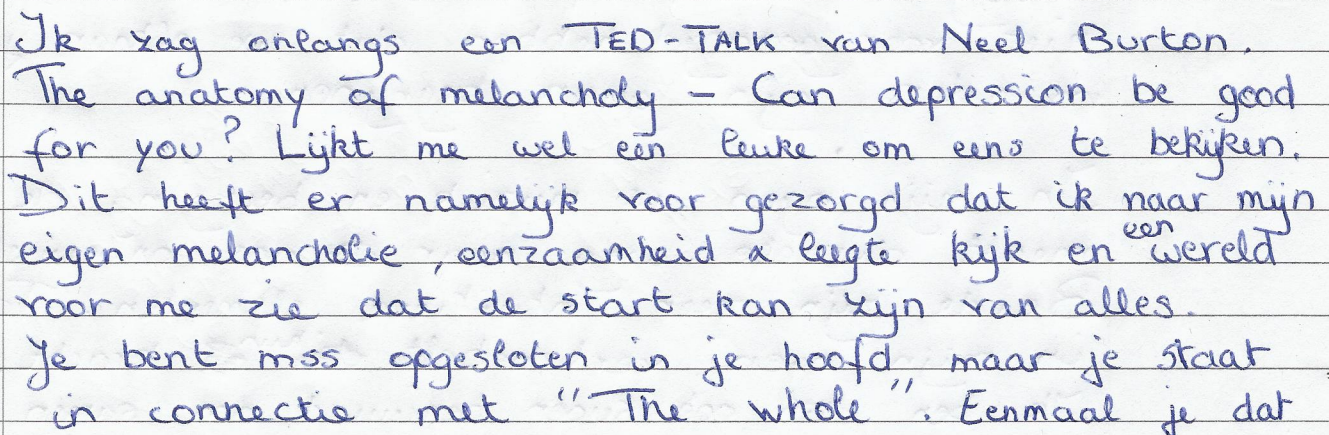 Ik zag onlangs een TED-TALK van Neel Burton.
The anatomy of melancholy - Can depression be good
for you? Lijkt me wel een leuke om eens te bekijken.
Dit heeft er namelijk voor gezorgd dat ik naar mijn
eigen melancholie, eenzaamheid & leegte kijk en een wereld
voor me zie dat de start kan zijn van alles.
Je bent mss opgesloten in je hoofd, maar je staat
in connectie met "The whole". Eenmaal je dat